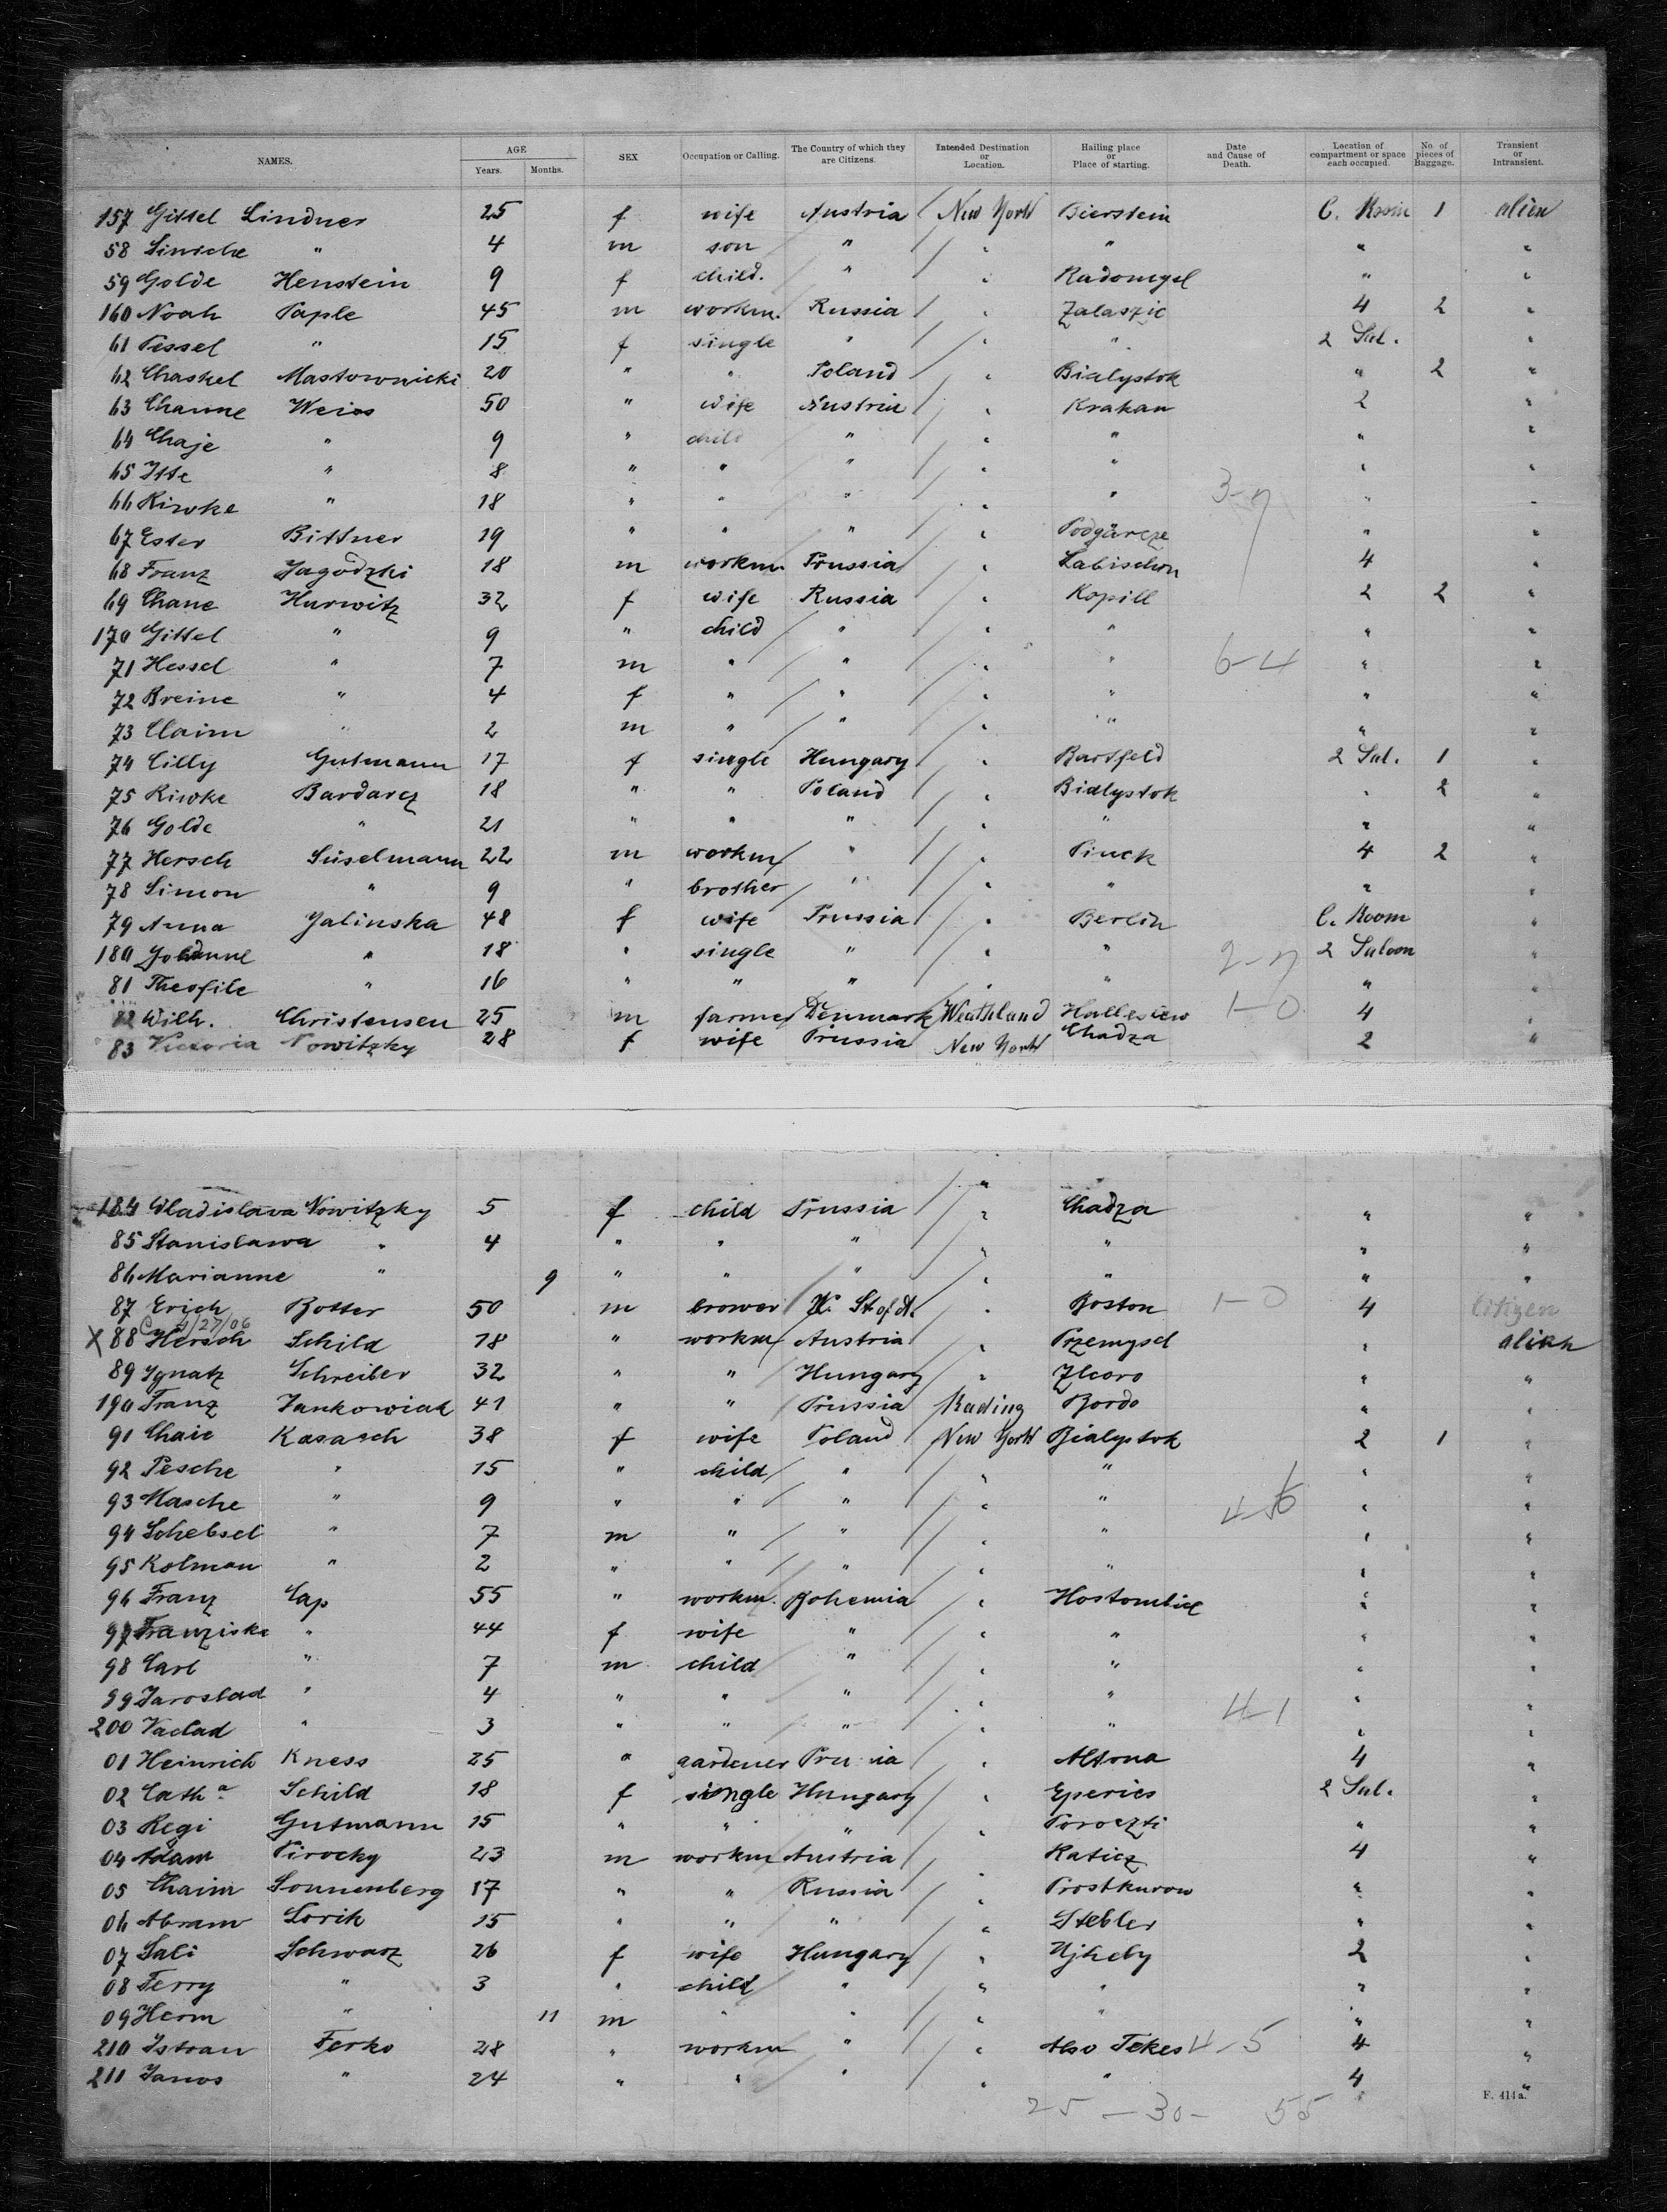 NAMES. AGE Years. Months. SEX Occupation or Calling. The Country of which they are Citizens. Intended Destination or Location. Hailing place or Place of starting. Date and Cause of Death. Location of compartment or space each occupied. No. of pieces of Baggage. Transient or Intransient.
157 Gittel Lindner 25 f wife Austria New York Bierstein C. Room 1 alien
58 " 4 m son " " " " "
59 Golde Henstein 9 f child. " " Radomysl " "
160 Noah Paple 45 m workm. Russia " Zalaszic 4 2 "
61 Pessel " 15 f single " " " 2 Sal. "
62 Chaskel Mastownicki 20 " " Poland " Bialystok " 2 "
63 Channe Weiss 50 " wife Austria " Krakau 2 "
64 Chaje " 9 " child " " " " "
65 Itte " 8 " " " " " " "
66 Riwke " 18 " " " " " 3-7 " "
67 Ester Bittner 19 " " " " Podgärcze " "
68 Franz Jagodzki 18 m workm Prussia " Labischon 4 "
69 Chane Hurwitz 32 f wife Russia " Kopill 2 2 "
170 Gittel " 9 " child " " " " "
71 Hessel " 7 m " " " " 6-4 " "
72 Breine " 4 f " " " " " "
73 Claim " 2 m " " " " " "
74 Cilly Gutmann 17 f single Hungary " Bartfeld 2 Sal. 1 "
75 Riwke Bardarcz 18 " " Poland " Bialystok " 2 "
76 Golde " 21 " " " " " " "
77 Hersch Süselmann 22 m workm " " Pinck 4 2 "
78 Simon " 9 " brother " " " " "
79 Anna Jalinska 48 f wife Prussia " Berlin C. Room "
180 " 18 " single " " " 2-7 2 Saloon "
81 Theofile " 16 " " " " " " "
82 Wilh. Christensen 25 m farmer Denmark Weathland 1-0 4 "
83 Victoria Nowitzky 28 f wife Prussia New York Chadza 2 "
184 Wladislawa Nowitzky 5 f child Prussia " Chadza " "
85 Stanislawa " 4 " " " " " " "
86 Marianne " 9 " " " " " " "
87 Erich Botter 50 m brower St of A. " Boston 1-0 4 Citizen
C 2/27/06
X 88 Hersch Schild 18 " workm Austria " Przemysl " alien
89 Ignatz Schreiber 32 " " Hungary " Zboro " "
190 Franz Jankowiak 41 " " Prussia Rading Bordo " "
91 Chaie Kasasch 38 f wife Poland New York Bialystok 2 1 "
92 Pesche " 15 " child " " " " "
93 Masche " 9 " " " " " 4-6 " "
94 Schebsel " 7 m " " " " " "
95 Kolman " 2 " " " " " " "
96 Franz Cap 55 " workm. Bohemia " Hostomlice " "
97 Franziska " 44 f wife " " " " "
98 Carl " 7 m child " " " " "
99 Jaroslad " 4 " " " " " " "
200 Vaclad " 3 " " " " " 4-1 " "
01 Heinrich Kness 25 " gardener Pru ia " Altona 4 "
02 Cath a Schild 18 f single Hungary " Eperies 2 Sal. "
03 Regi Gutmann 15 " " " " Poroczti " "
04 Adam Pirocky 23 m workm Austria Raticz 4 "
05 Chaim Sonnenberg 17 " " Russia " Proskurow " "
06 Abram Sorik 15 " " " " Stebler " "
07 Sali Schwarz 26 f wife Hungary " Ujhely 2 "
08 Ferry " 3 " child " " " " "
09 Herm " 11 m " " " " " "
210 Istvan Ferko 28 " workm " " Also Tekes 4-5 4 "
211 Janos " 24 " " " " " 4 "
25 - 30 - 55
F. 414a.